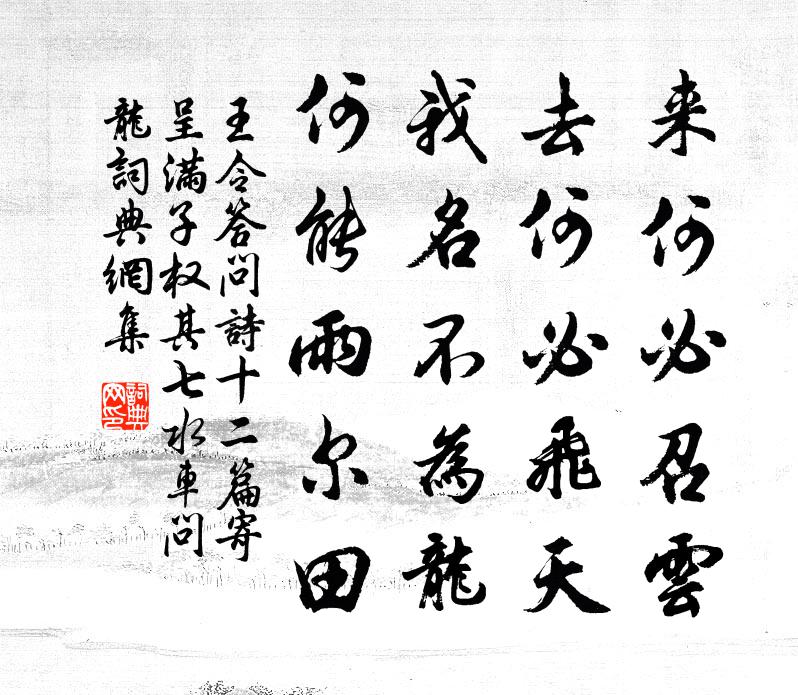 来何必召雲
去何必飛天
我名不為龍
何能雨尔田
王令答問詩十二篇寄
呈滿子权其七水車問
龍詞典網集
詞典
网印